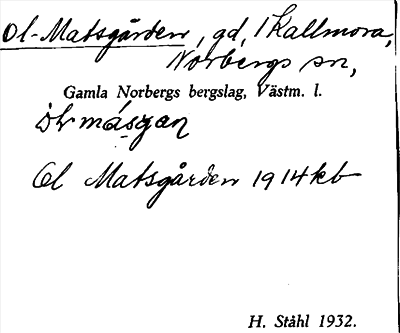 Ol-Matsgården, gd, i Kallmora,
Norbergs sn,
Gamla Norbergs bergslag, Västm. l.
måsgan
Ol Matsgården 1914 kb
H. Ståhl 1932.